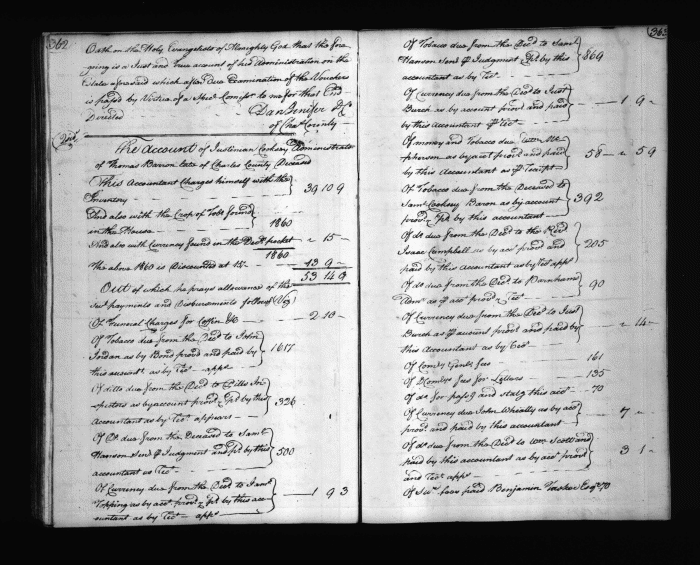 362
Oath on the Holy Evangelists of Almighty God that the fore
going is a Just and true account of his Administration on the
Estate aforesaid which after due Examination of the Vouchers
is passed by Virtue of a Special Comisso to me for that End
Directed
Dan Jenifer
of Chas County
The Account of Justinian Cooksey Administrator
of Thomas Barron late of Charles County Deceased
This Accountant Charges himself with the
Inventory } 39 10 9
And also with the Crop of Tobo found
in the House } 1860
And also with Currency found in the Decds pocket " 15 -
1860
The above 1860 is Discounted at 15 13 9 -
53 14 9
Out of which he prays allowance of the
payments and Disbursments follows (Viz)
Of Funeral Charges for Coffin &c 2 10 -
Of Tobacco due from the Decd to John
Jordan as by Bond proved and paid by
this accountt as by rect appr } 1617
Of ditto due from the Decd to
as by account provd & pd by this
Accountant as by rect appears } 326
Of Do due from the Deceased to Saml
Hanson Senr Judgment and pd by this
accountant as rect } 500
Of Currency due from the Decd to Jams
Topping as by acct provd & pd by this acc
countant as by rect appr } 1 9 3
363
Of Tobacco due from the Decd to Saml
Hanson Senr Judgment pd by this
accountant as by rect } 869
Of Currency due from the Decd to Just
Burch as by account provd and paid
by this Accountant rect } 1 9 -
Of money and Tobacco due
as by acct provd and paid
by this Accountant as receipt } 58 " 5 9
Of Tobacco due from the Deceased to
Saml Cooksey Baron as by account
provd pd by this accountant } 392
Of do due from the Decd to the Revd
Isaac Campbell as by acct proved and
paid by this accountant as by rect appr } 205
Of do due from the Decd to Barnham
as acct provd rect } 90
Of Currency due from the Decd to Just
Burch as account provd and paid by
this Accountant as by rect } " 14 -
Of Comry Genls fees 161
Of Fees for Letters 135
Of do for passg and statg this acct 70
Of Currency due John Wheatly as by acct
provd and paid by this accountant } 7 "
Of do due from the Decd to Wm Scotland
paid by this accountant as by acct provd
and rect appr } 3 1 -
Of fees paid Benjamin Tasker Esqr 70